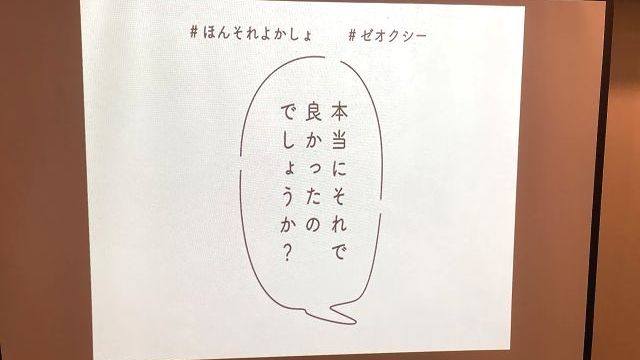 #ほんそれよかしょ #ゼオクシー
本当にそれで
良かったの
でしょうか?